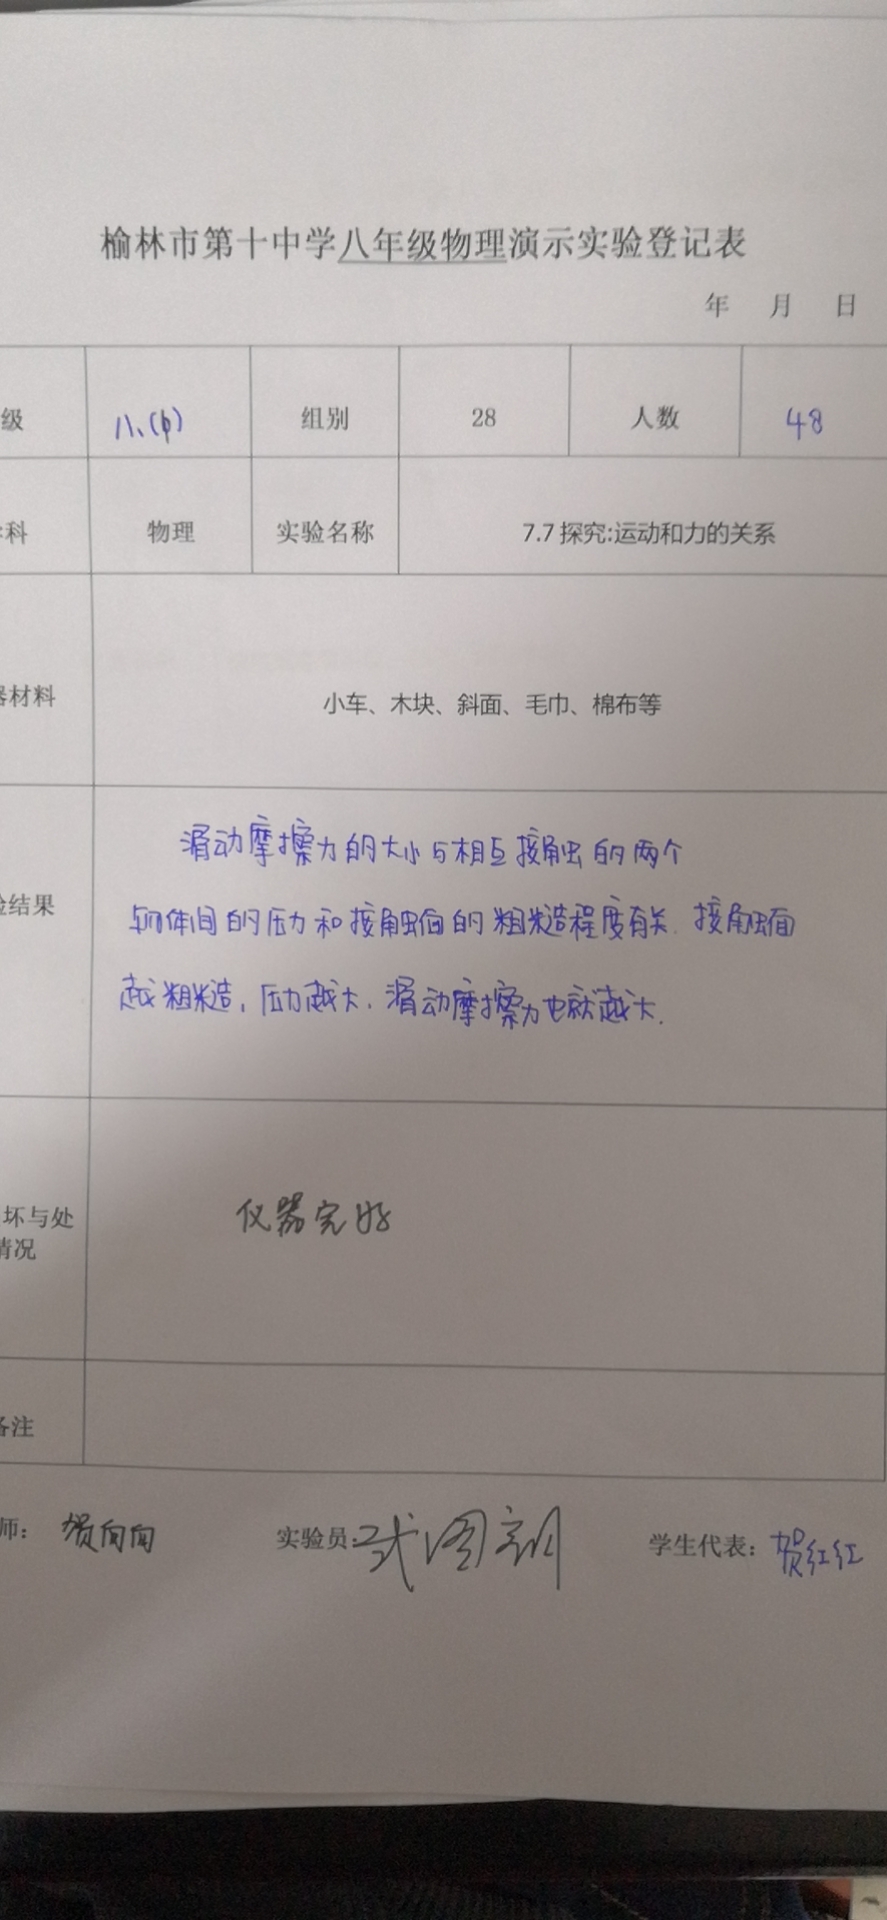 榆林市第十中学八年级物理演示实验登记表
年 月 日
级 八、(6) 组别 28 人数 48
科 物理 实验名称 7.7 探究:运动和力的关系
器材料 小车、木块、斜面、毛巾、棉布等
滑动摩擦力的大小与相互接触的两个
验结果 物体间的压力和接触面的粗糙程度有关. 接触面
越粗糙, 压力越大, 滑动摩擦力也就越大.
坏与处 仪器完好
情况
备注
师: 贺向向 实验员: 学生代表: 贺红红